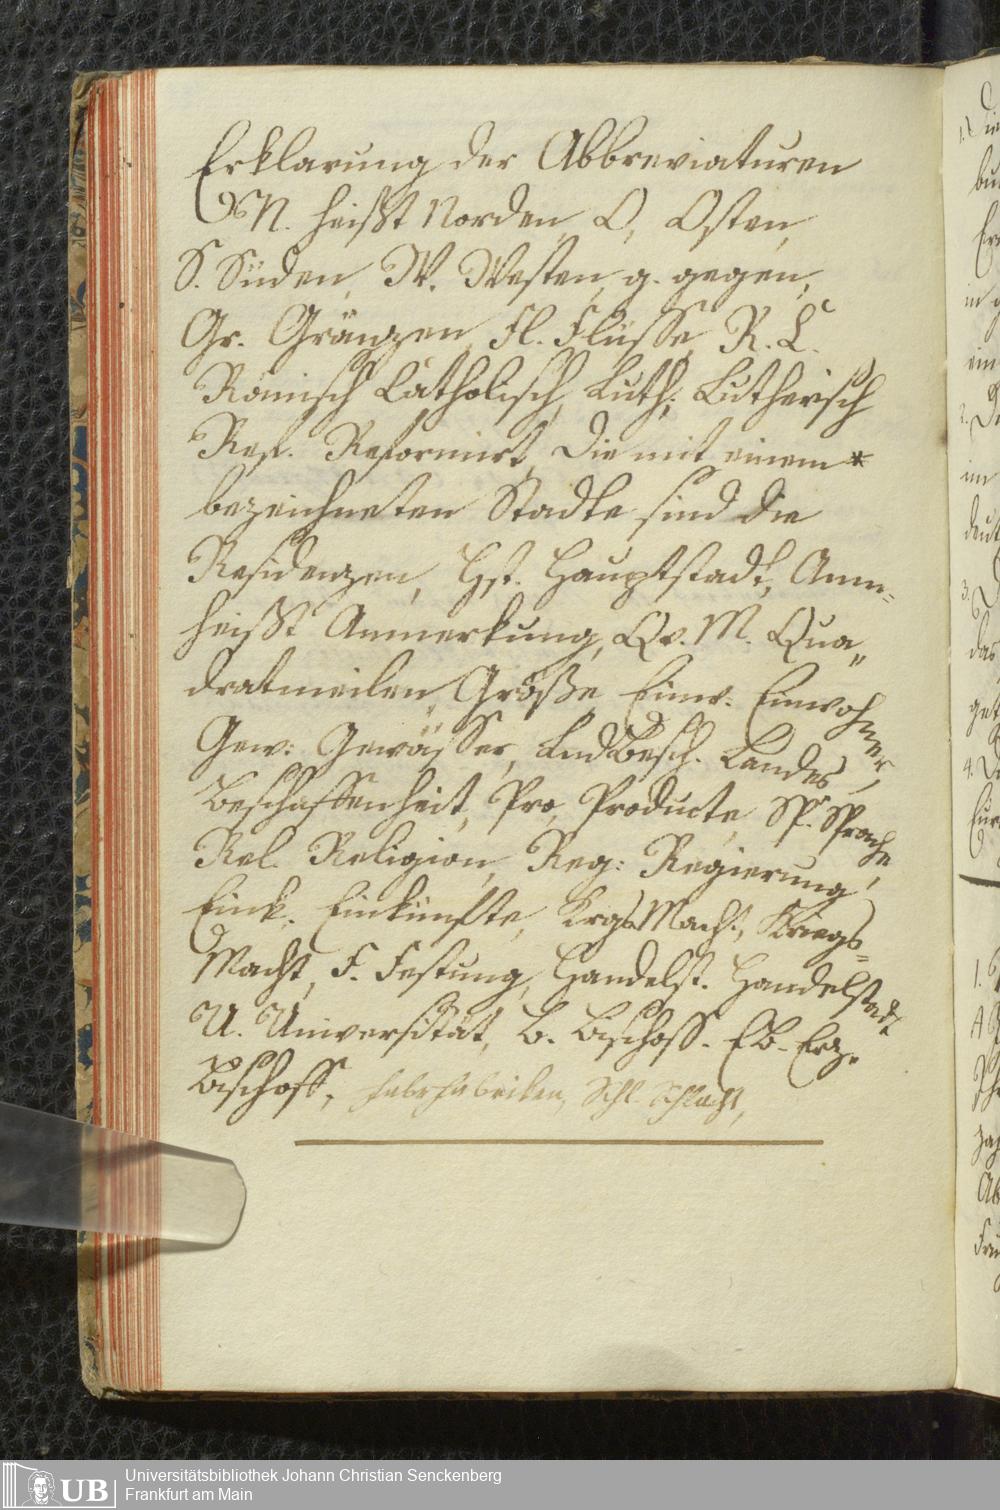 Erklarung der Abbreviaturen
N. heißt Norden, O, Osten,
S. Süden, W. Westen, g. gegen,
Gr. Gränzen, Fl. Flüsse, R. C.
Römisch Catholisch, Luth; Lutherisch
Ref. Reformirt, Die mit einem *
bezeichneten Stadte sind die
Residenzen, Hst. Hauptstadt, Anm=
heißt Anmerkung, Qv. M. Qua„
dratmeilen, Größe, Einw: Einwohner,
Gew: Gewässer, LndBesch. Landes,
Beschaffenheit, Pro, Producte, Sp. Sprache,
Rel. Religion, Reg: Regierung,
Eink. Einkünfte, KrgsMacht, Kriegs=
Macht, F. Festung, Handelst. Handelstadt
U. Universität, B. Bischoff. Eb. Erz.
Bischoff, Fabr Fabriken, Schl. Schlacht,
UB
Universitätsbibliothek Johann Christian Senckenberg
Frankfurt am Main